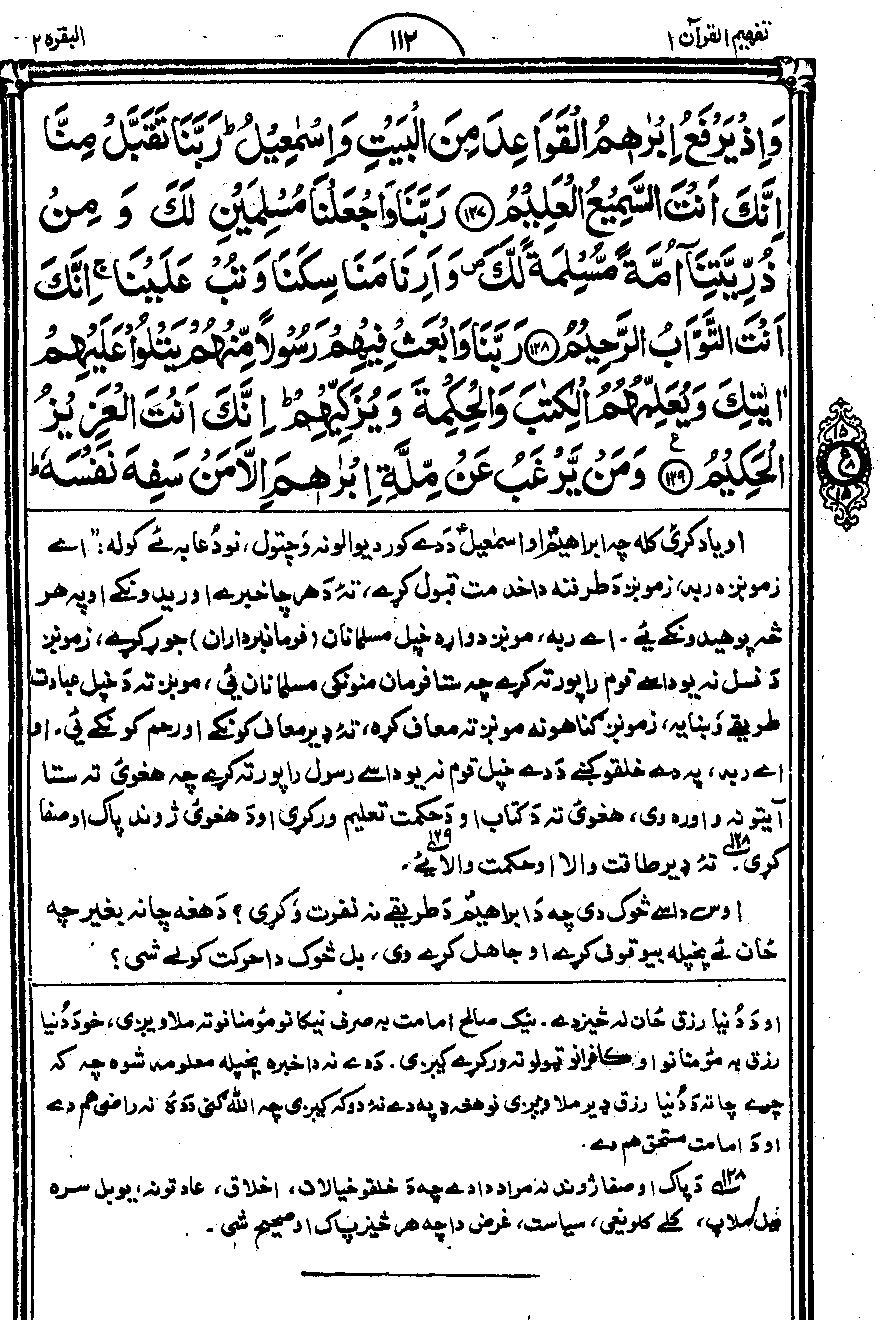 تفهیم القرآن ۱
۱۱۲
البقره ۲
وَاِذْ يَرْفَعُ اِبْرٰهٖمُ الْقَوَاعِدَ مِنَ الْبَيْتِ وَاِسْمٰعِيْلُ ؕ رَبَّنَا تَقَبَّلْ مِنَّا
اِنَّكَ اَنْتَ السَّمِيْعُ الْعَلِيْمُ ﴿۱۲۷﴾ رَبَّنَا وَاجْعَلْنَا مُسْلِمَيْنِ لَكَ وَ مِنْ
ذُرِّيَّتِنَآ اُمَّةً مُّسْلِمَةً لَّكَ ۪ وَاَرِنَا مَنَاسِكَنَا وَتُبْ عَلَيْنَا ۚ اِنَّكَ
اَنْتَ التَّوَّابُ الرَّحِيْمُ ﴿۱۲۸﴾ رَبَّنَا وَابْعَثْ فِيْهِمْ رَسُوْلًا مِّنْهُمْ يَتْلُوْا عَلَيْهِمْ
اٰيٰتِكَ وَيُعَلِّمُهُمُ الْكِتٰبَ وَالْحِكْمَةَ وَيُزَكِّيْهِمْ ؕ اِنَّكَ اَنْتَ الْعَزِيْزُ
الْحَكِيْمُ ﴿۱۲۹﴾ ع وَمَنْ يَّرْغَبُ عَنْ مِّلَّةِ اِبْرٰهٖمَ اِلَّا مَنْ سَفِهَ نَفْسَهٗ ؕ
۱۵
ع ۸
۱۵
او یاد کړئ کله چه ابراهیمؑ او اسمٰعیلؑ دَدے کور دیوالونه وَچتول، نو دُعا به ئے کوله: "اے
زمونږه ربه، زمونږ دَ طرفنه دا خدمت قبول کړے، تهٔ دَ هر چا خبرے اوریدونکے او په هر
څه پوهیدونکے ئے. اے ربه، مونږ دواړه خپل مسلمانان (فرمانبرداران) جوړ کړے، زمونږ
دَ نسل نه یو داسے قوم راپورته کړے چه ستا فرمان منونکی مسلمانان ئی، مونږ ته دَ خپل عبادت
طریقے وَښایه، زمونږ ګناهونه مونږ ته معاف کړه، تهٔ ډیر معاف کونکے او رحم کونکے ئی. او
اے ربه، په دے خلقو کښے دَدے خپل قوم نه یو داسے رسول راپورته کړے چه هغوئ ته ستا
آیتونه واوره وی، هغوئ ته دَ کتاب او دَ حکمت تعلیم ورکړی او دَ هغوئ ژوند پاک او صفا
کړی. ۱۲۸ تهٔ ډیر طاقت والا او حکمت والا ئے ۱۲۹.
اوس داسے څوک دی چه دَ ابراهیمؑ دَ طریقے نه نفرت وَکړی؟ دَ هغه چا نه بغیر چه
ځان ئے پخپله بیوقوفی کړے او جاهل کړے وی، بل څوک دا حرکت کولے شی؟
او دَ دُنیا رزق ځان له څیز دے. نیک صالح امامت به صرف نیکانو مؤمنانو ته ملاویږی، خو دَ دُنیا
رزق به مؤمنانو او کافرانو ټولو ته ورکړے کیږی. دَدے نه دا خبره پخپله معلومه شوه چه که
چرے چا ته دَ دُنیا رزق ډیر ملاویږی نو هغه دِ په دے نهٔ دوکه کیږی چه الله ګنی دَدهٔ نه راضی هم دے
او دَ امامت مستحق هم دے.
۱۲۸ دَ پاک او صفا ژوند نه مراد دا دے چه دَ خلقو خیالات، اخلاق، عادتونه، یو بل سره
میل ملاپ، کلے کلویغی، سیاست، غرض دا چه هر څیز پاک او صحیح شی.